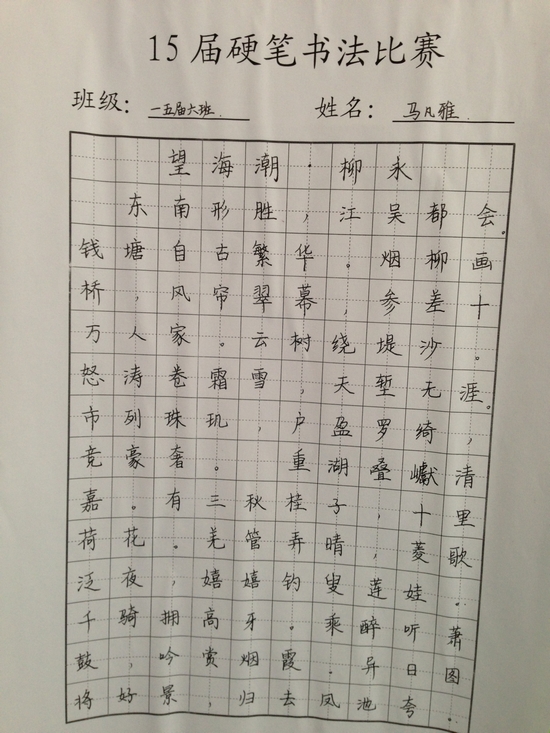 15届硬笔书法比赛
班级：一五届大班 姓名：马凡雅
望海潮·柳永
东南形胜，江吴都会。
钱塘自古繁华。烟柳画
桥，风帘翠幕，参差十
万人家。云树绕堤沙。
怒涛卷霜雪，天堑无涯。
市列珠玑，户盈罗绮，
竞豪奢。重湖叠巘清
嘉。有三秋桂子，十里
荷花。羌管弄晴，菱歌
泛夜，嬉嬉钓叟莲娃。
千骑拥高牙。乘醉听萧
鼓，吟赏烟霞。异日图
将好景，归去凤池夸。